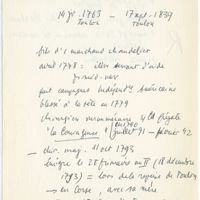 14 fév. 1763 — 17 sept. 1839
Toulon Toulon
fils d'1 marchand chandelier
avant 1778 = élève servant d'aide
fait campagnes Indépend. américaine
blessé à la tête en 1779
chirurgien surnuméraire la frégate
"La Courageuse" juillet 91 — février 92
chir. maj. 11 oct 1793
émigre le 28 frimaire an II (18 décembre
1793) = lors de la reprise de Toulon
→ en Corse, avec sa mère